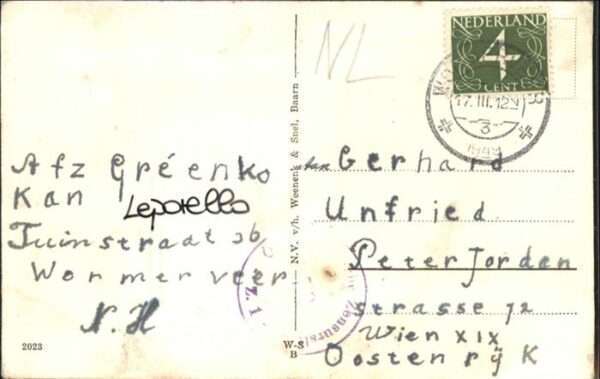 NL
NEDERLAND
4
CENT
17.III.12
3
Afz Gréenko
Kan
Leporello
Tuinstraat 36
Wormerveer
N.H
2023
N.V. v/h. Weenenk & Snel, Baarn
W-3
B
Zensurst
Z. 1
Gerhard
Unfried
Peter Jordan
strasse 72
Wien XIX
Oostenrÿk